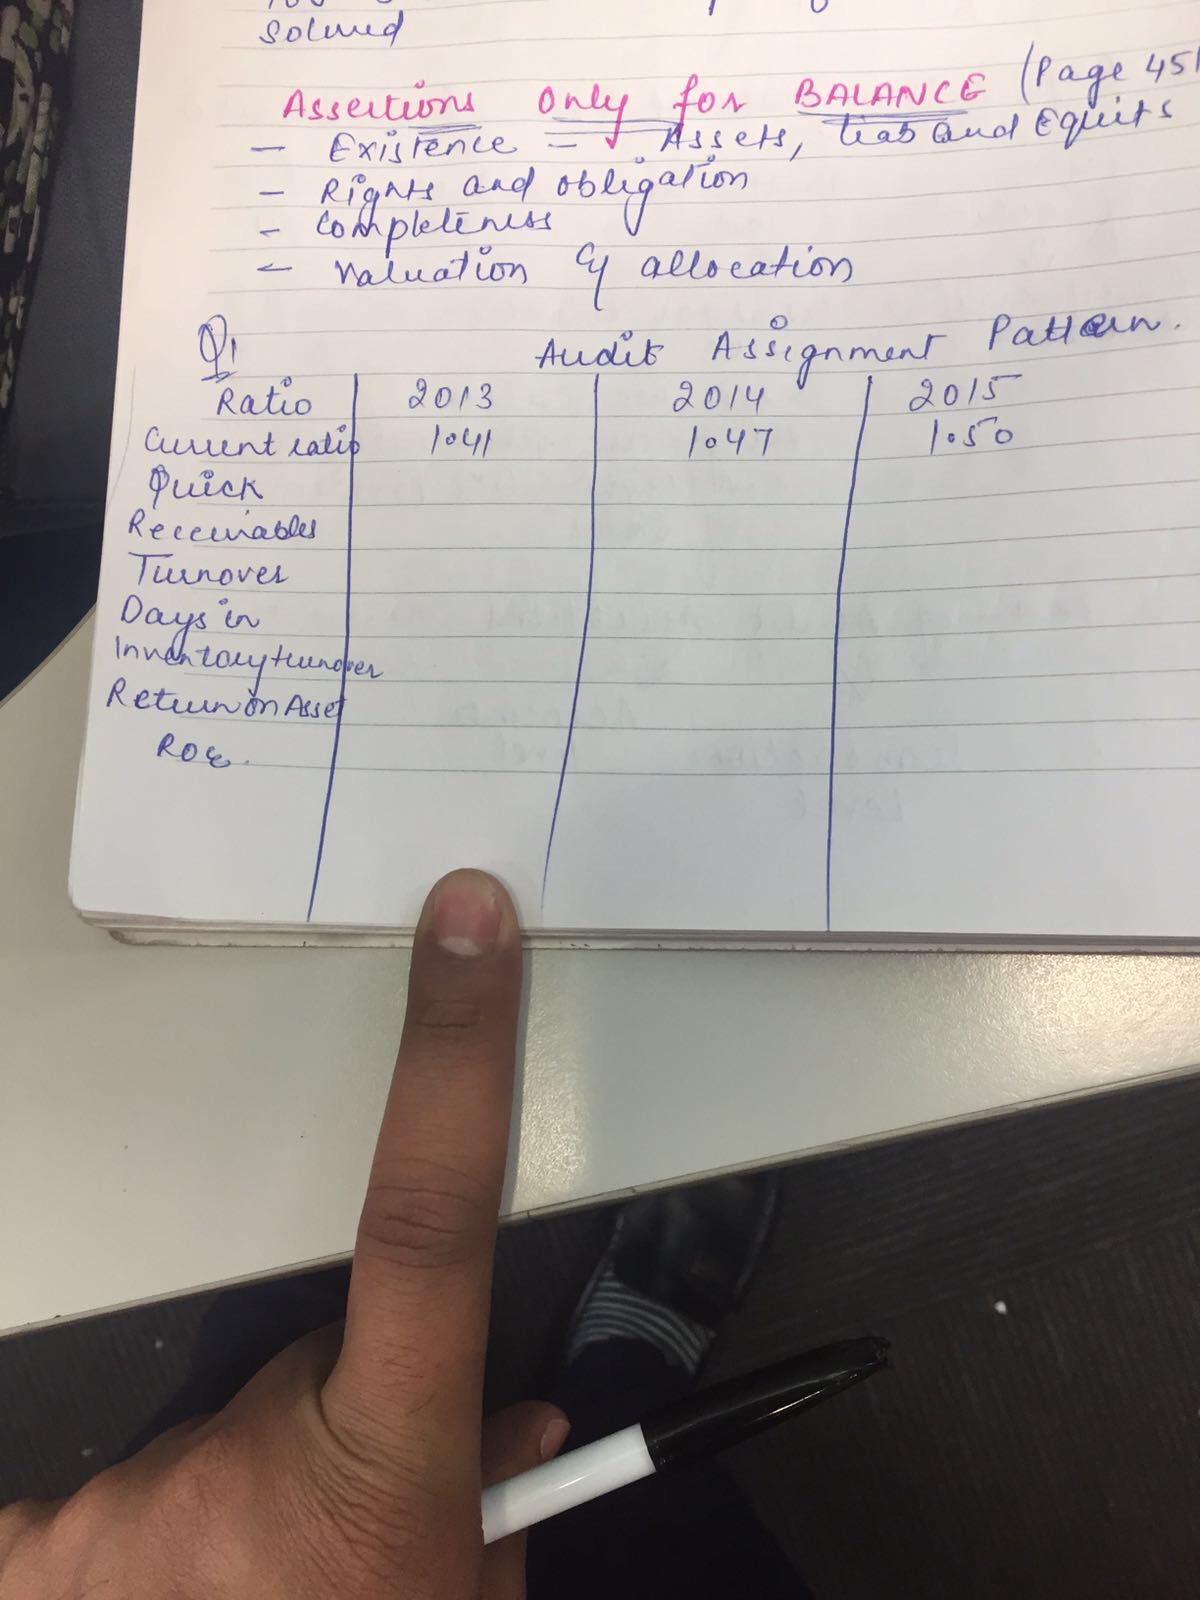 Solved
Assertions only for BALANCE (Page 451
- Existence - Assets, liab and Equits
- Rights and obligation
- Completeness
- Valuation & allocation
Q1 Audit Assignment Pattern.
Ratio 2013 2014 2015
Current ratio 1.41 1.47 1.50
Quick
Receivables
Turnover
Days in
Inventory turnover
Return on Asset
ROE.